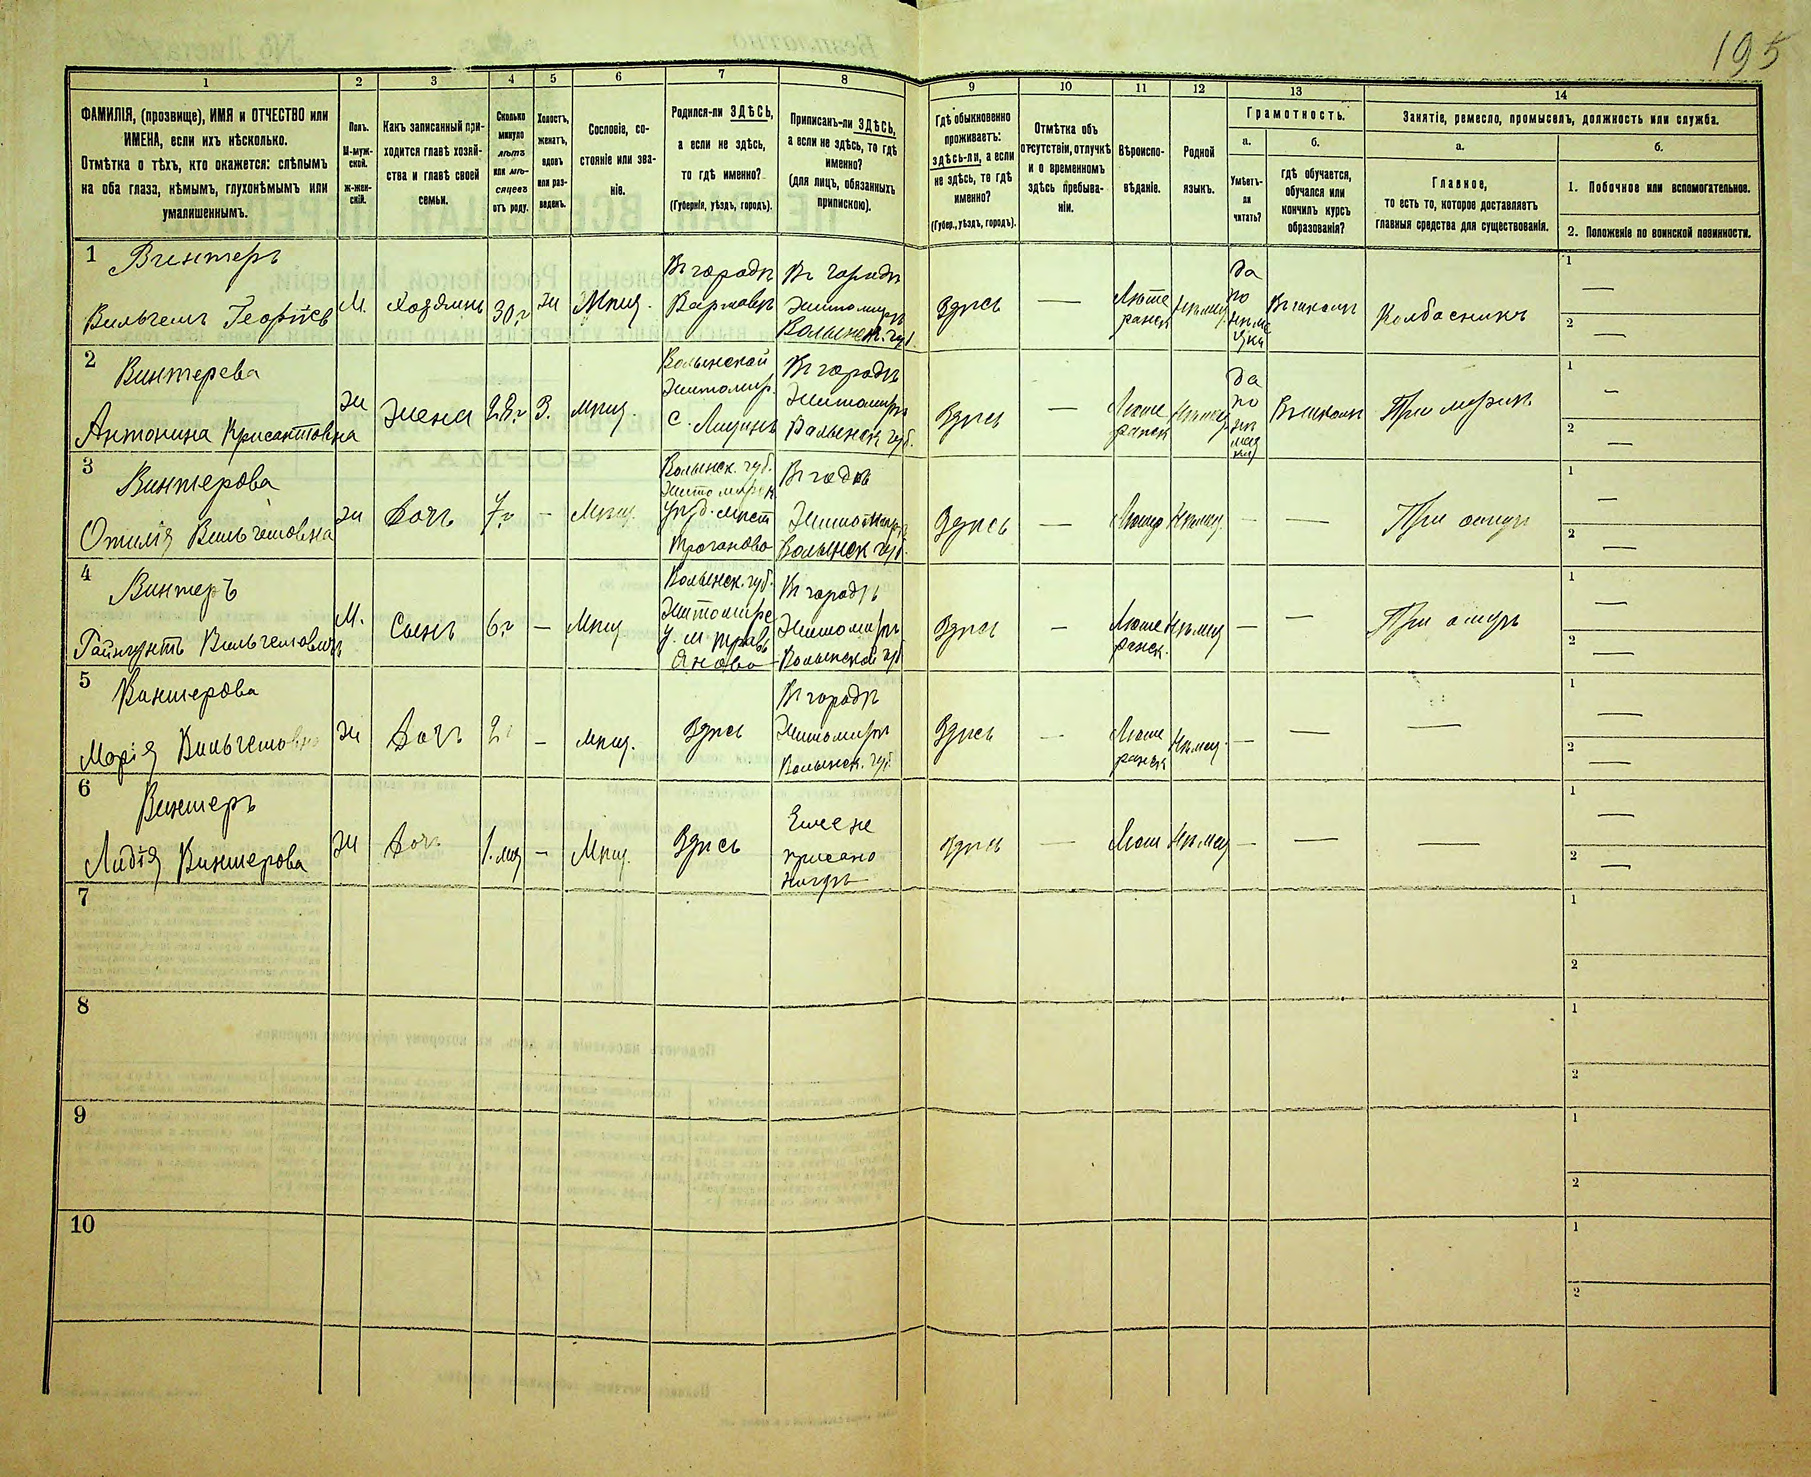 195
1
2
3
4
5
6
7
8
9
10
11
12
13
14
ФАМИЛІЯ, (прозвище), ИМЯ и ОТЧЕСТВО или
ИМЕНА, если ихъ нѣсколько.
Отмѣтка о тѣхъ, кто окажется: слѣпымъ
на оба глаза, нѣмымъ, глухонѣмымъ или
умалишеннымъ.
Полъ.
М-муж-
ской.
ж-жен-
скій.
Какъ записанный при-
ходится главѣ хозяй-
ства и главѣ своей
семьи.
Сколько
минуло
лѣтъ
или мѣ-
сяцевъ
отъ роду.
Холостъ,
женатъ,
вдовъ
или раз-
веденъ.
Сословіе, со-
стояніе или зва-
ніе.
Родился-ли ЗДѢСЬ,
а если не здѣсь,
то гдѣ именно?
(Губернія, уѣздъ, городъ).
Приписанъ-ли ЗДѢСЬ,
а если не здѣсь, то гдѣ
именно?
(для лицъ, обязанныхъ
припискою).
Гдѣ обыкновенно
проживаетъ:
здѣсь-ли, а если
не здѣсь, то гдѣ
именно?
(Губер., уѣздъ, городъ).
Отмѣтка объ
отсутствіи, отлучкѣ
и о временномъ
здѣсь пребыва-
ніи.
Вѣроиспо-
вѣданіе.
Родной
языкъ.
Грамотность.
а.
Умѣетъ-
ли
читать?
б.
гдѣ обучается,
обучался или
кончилъ курсъ
образованія?
Занятіе, ремесло, промыселъ, должность или служба.
а.
Главное,
то есть то, которое доставляетъ
главныя средства для существованія.
б.
1. Побочное или вспомогательное.
2. Положеніе по воинской повинности.
1
Винтеръ
Вильгелмъ Георгіев
М.
Хозяинъ
30 г
ж
Мѣщ.
Въ городѣ
Варшавѣ
Въ городѣ
Житомирѣ
Волынск. губ
Здѣсь
—
Люте
ранск
Нѣмец.
да
по
нѣме
цки
Въ школѣ
Колбасникъ
1
—
2
—
2
Винтерова
Антонина Крисантовна
ж
Жена
28 г
З.
Мѣщ.
Волынской
Житомир.
с.
Въ городѣ
Житомирѣ
Волынск губ.
Здѣсь
—
Люте
ранск
Нѣмец
да
по
Въ школѣ
При мужѣ
1
—
2
—
3
Винтерова
Отилія Вильгемовна
ж
Дочь
7 г
-
Мѣщ.
Волынск. губ.
Житомирск
уѣзд. мѣст
Троганово
Житомирѣ
Волынск губ.
Здѣсь
—
Нѣмец.
-
—
При отцѣ
1
—
2
—
4
Винтеръ
Вильгемовичъ
М.
Сынъ
6 г
—
Мѣщ
Волынск. губ.
Житомирс
у. м
Въ городѣ
Житомирѣ
Волынской губ
Здѣсь
—
Люте
ранск.
Нѣмец
—
—
При отцѣ
1
—
2
—
5
Винтерова
Марія Вильгемовна
ж
Дочь
2
-
Мѣщ.
Здѣсь
Въ городѣ
Житомирѣ
Волынск. губ
Здѣсь
—
Люте
ранск
Нѣмец.
-
—
—
1
—
2
—
6
Винтеръ
Лидія Винтерова
ж
Дочь
1. мѣц
-
Мѣщ.
Здѣсь
Еще не
Здѣсь
—
Лют
Нѣмец
-
—
—
1
—
2
—
7
1
2
8
1
2
9
1
2
10
1
2